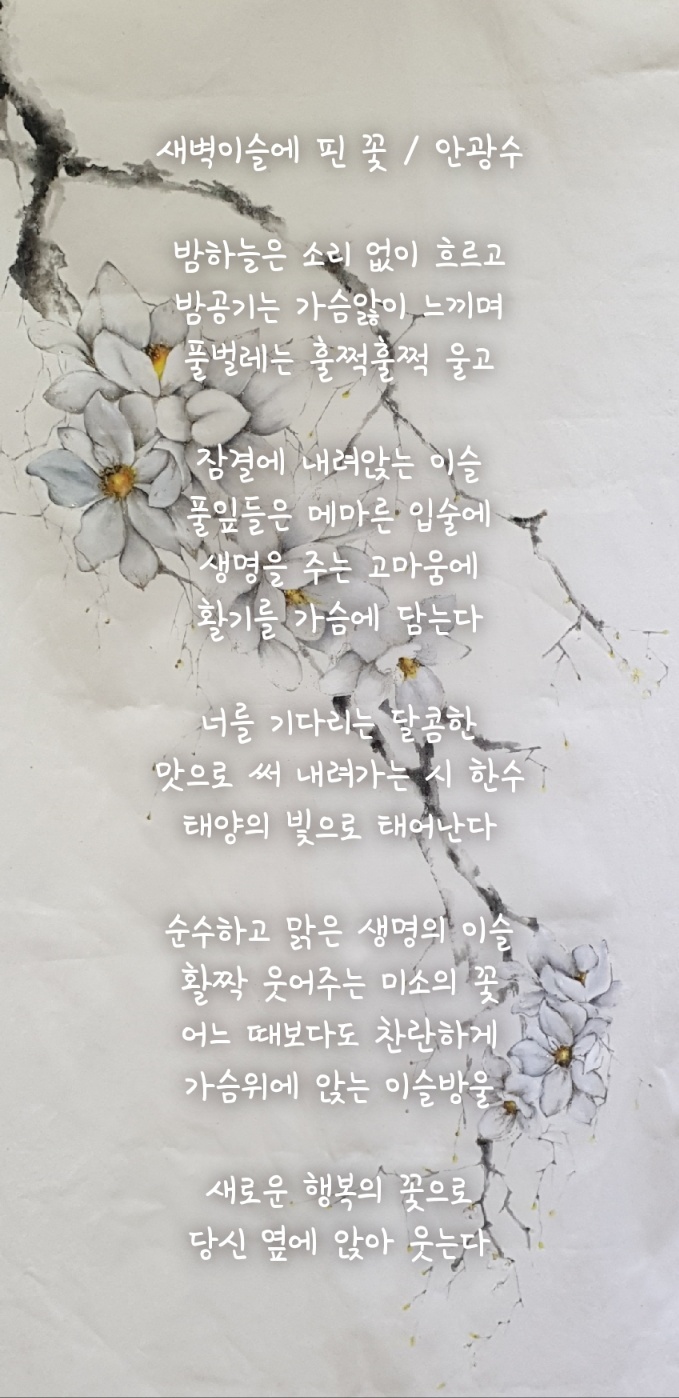 새벽이슬에 핀 꽃 / 안광수
밤하늘은 소리 없이 흐르고
밤공기는 가슴앓이 느끼며
풀벌레는 훌쩍훌쩍 울고
잠결에 내려앉는 이슬
풀잎들은 메마른 입술에
생명을 주는 고마움에
활기를 가슴에 담는다
너를 기다리는 달콤한
맛으로 써 내려가는 시 한수
태양의 빛으로 태어난다
순수하고 맑은 생명의 이슬
활짝 웃어주는 미소의 꽃
어느 때보다도 찬란하게
가슴위에 앉는 이슬방울
새로운 행복의 꽃으로
당신 옆에 앉아 웃는다